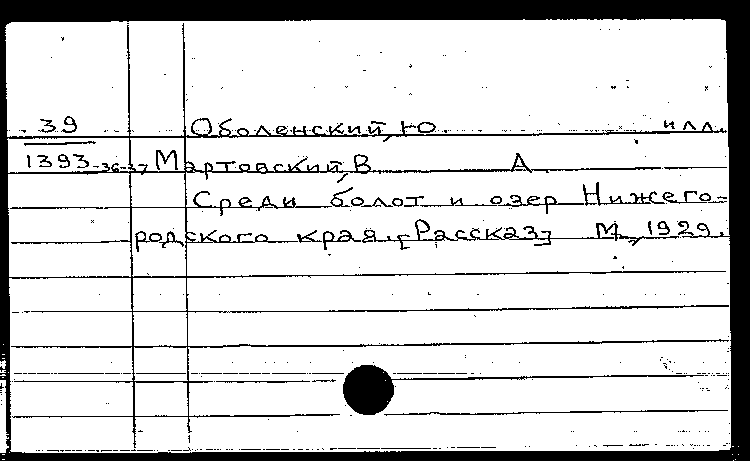 39 Оболенский, Ю. илл.
1393-36-37 Мартовский, В. А.
Среди болот и озер Нижего-
родского края. [Рассказ] М., 1929.